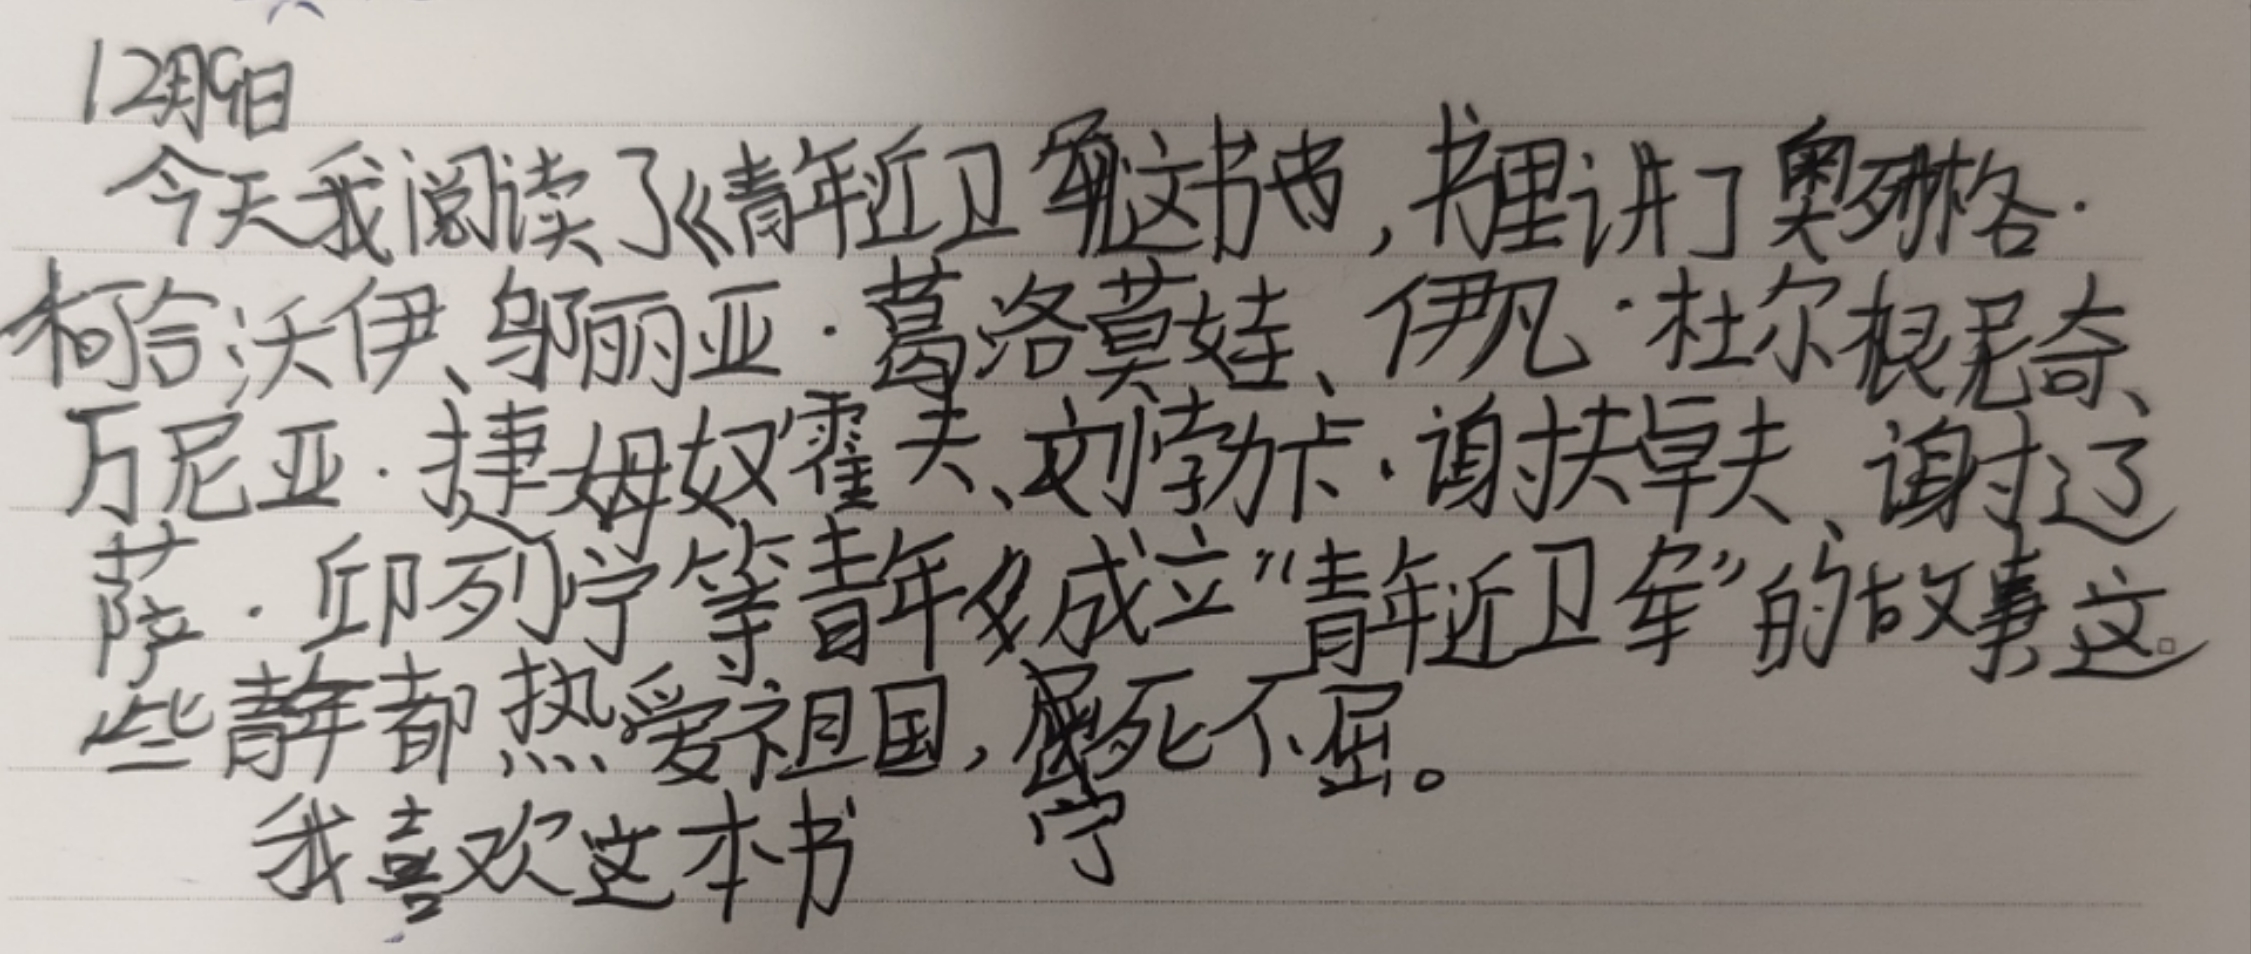 12月9日
今天我阅读了《青年近卫军》这书,书里讲了奥列格·
柯舍沃伊、邬丽亚·葛洛莫娃、伊凡·杜尔根尼奇、
万尼亚·捷姆奴霍夫、刘勃卡·谢扶卓夫、谢辽
萨·邱列宁等青年成立“青年近卫军”的故事。这
些青年都热爱祖国,宁死不屈。
我喜欢这本书